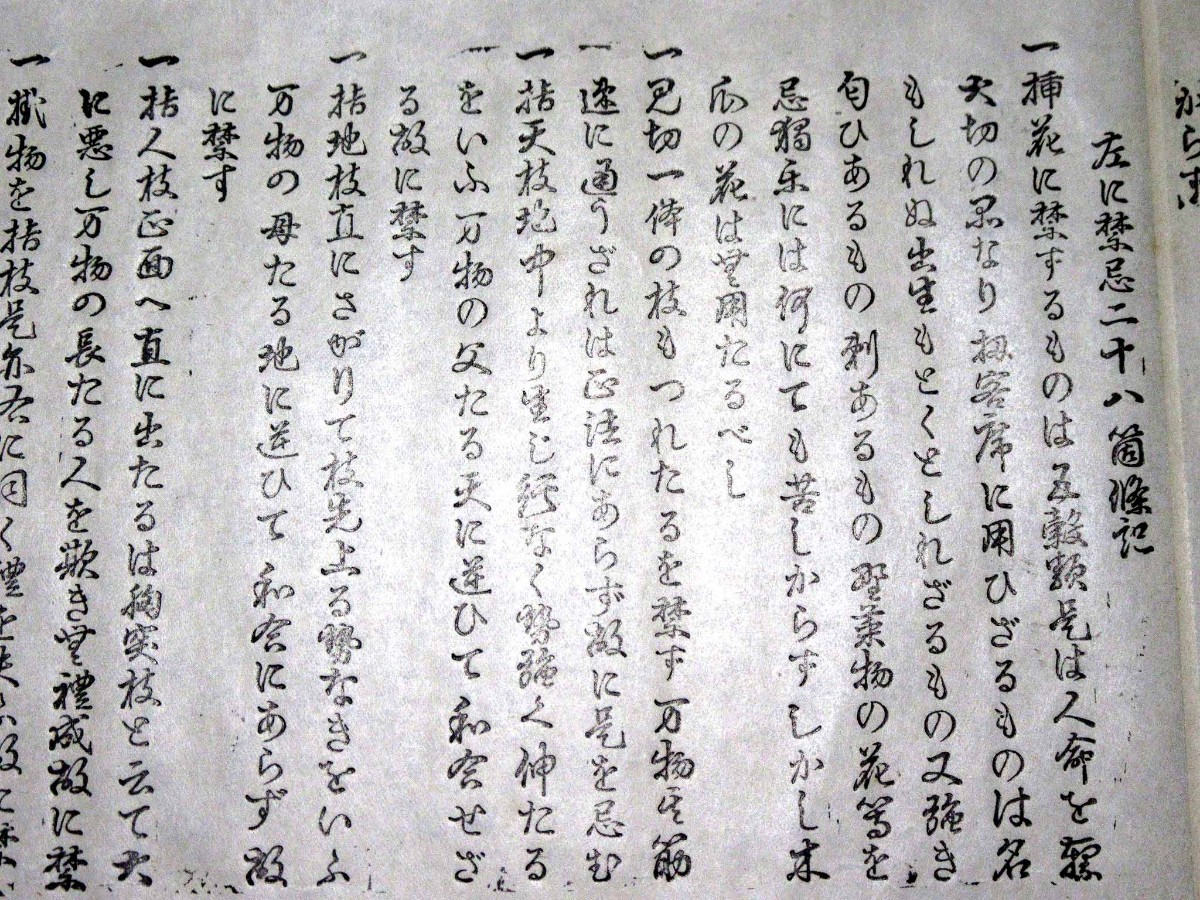 からず
左に禁忌二十八箇條記
一挿花に禁ずるものは五穀類是は人命を
大切の品なり扨客席に用ひざるものは名
もしれぬ出生もとくとしれざるもの又強き
匂ひあるもの刺あるもの野菜物の花等を
忌獨楽には何にても苦しからずしかし木
瓜の花は無用たるべし
一見切一体の枝もつれたるを禁ず万物其筋
違に通うざれは正法にあらず故に是を忌む
一指天枝 中より生じ なく勢強く伸たる
をいふ万物の父たる天に逆ひて和合せざ
る故に禁ず
一指地枝直にさがりて枝先上る勢なきをいふ
万物の母たる地に逆ひて和合にあらず故
に禁ず
一指人枝正面へ直に出たるは胸突枝と云て大
に悪し万物の長たる人を欺き無禮成故に禁
物を指枝是亦右に同く禮を失ふ故に禁